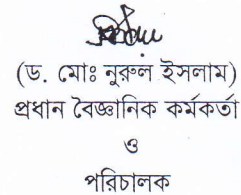 (ড. মোঃ নুরুল ইসলাম)
প্রধান বৈজ্ঞানিক কর্মকর্তা
ও
পরিচালক